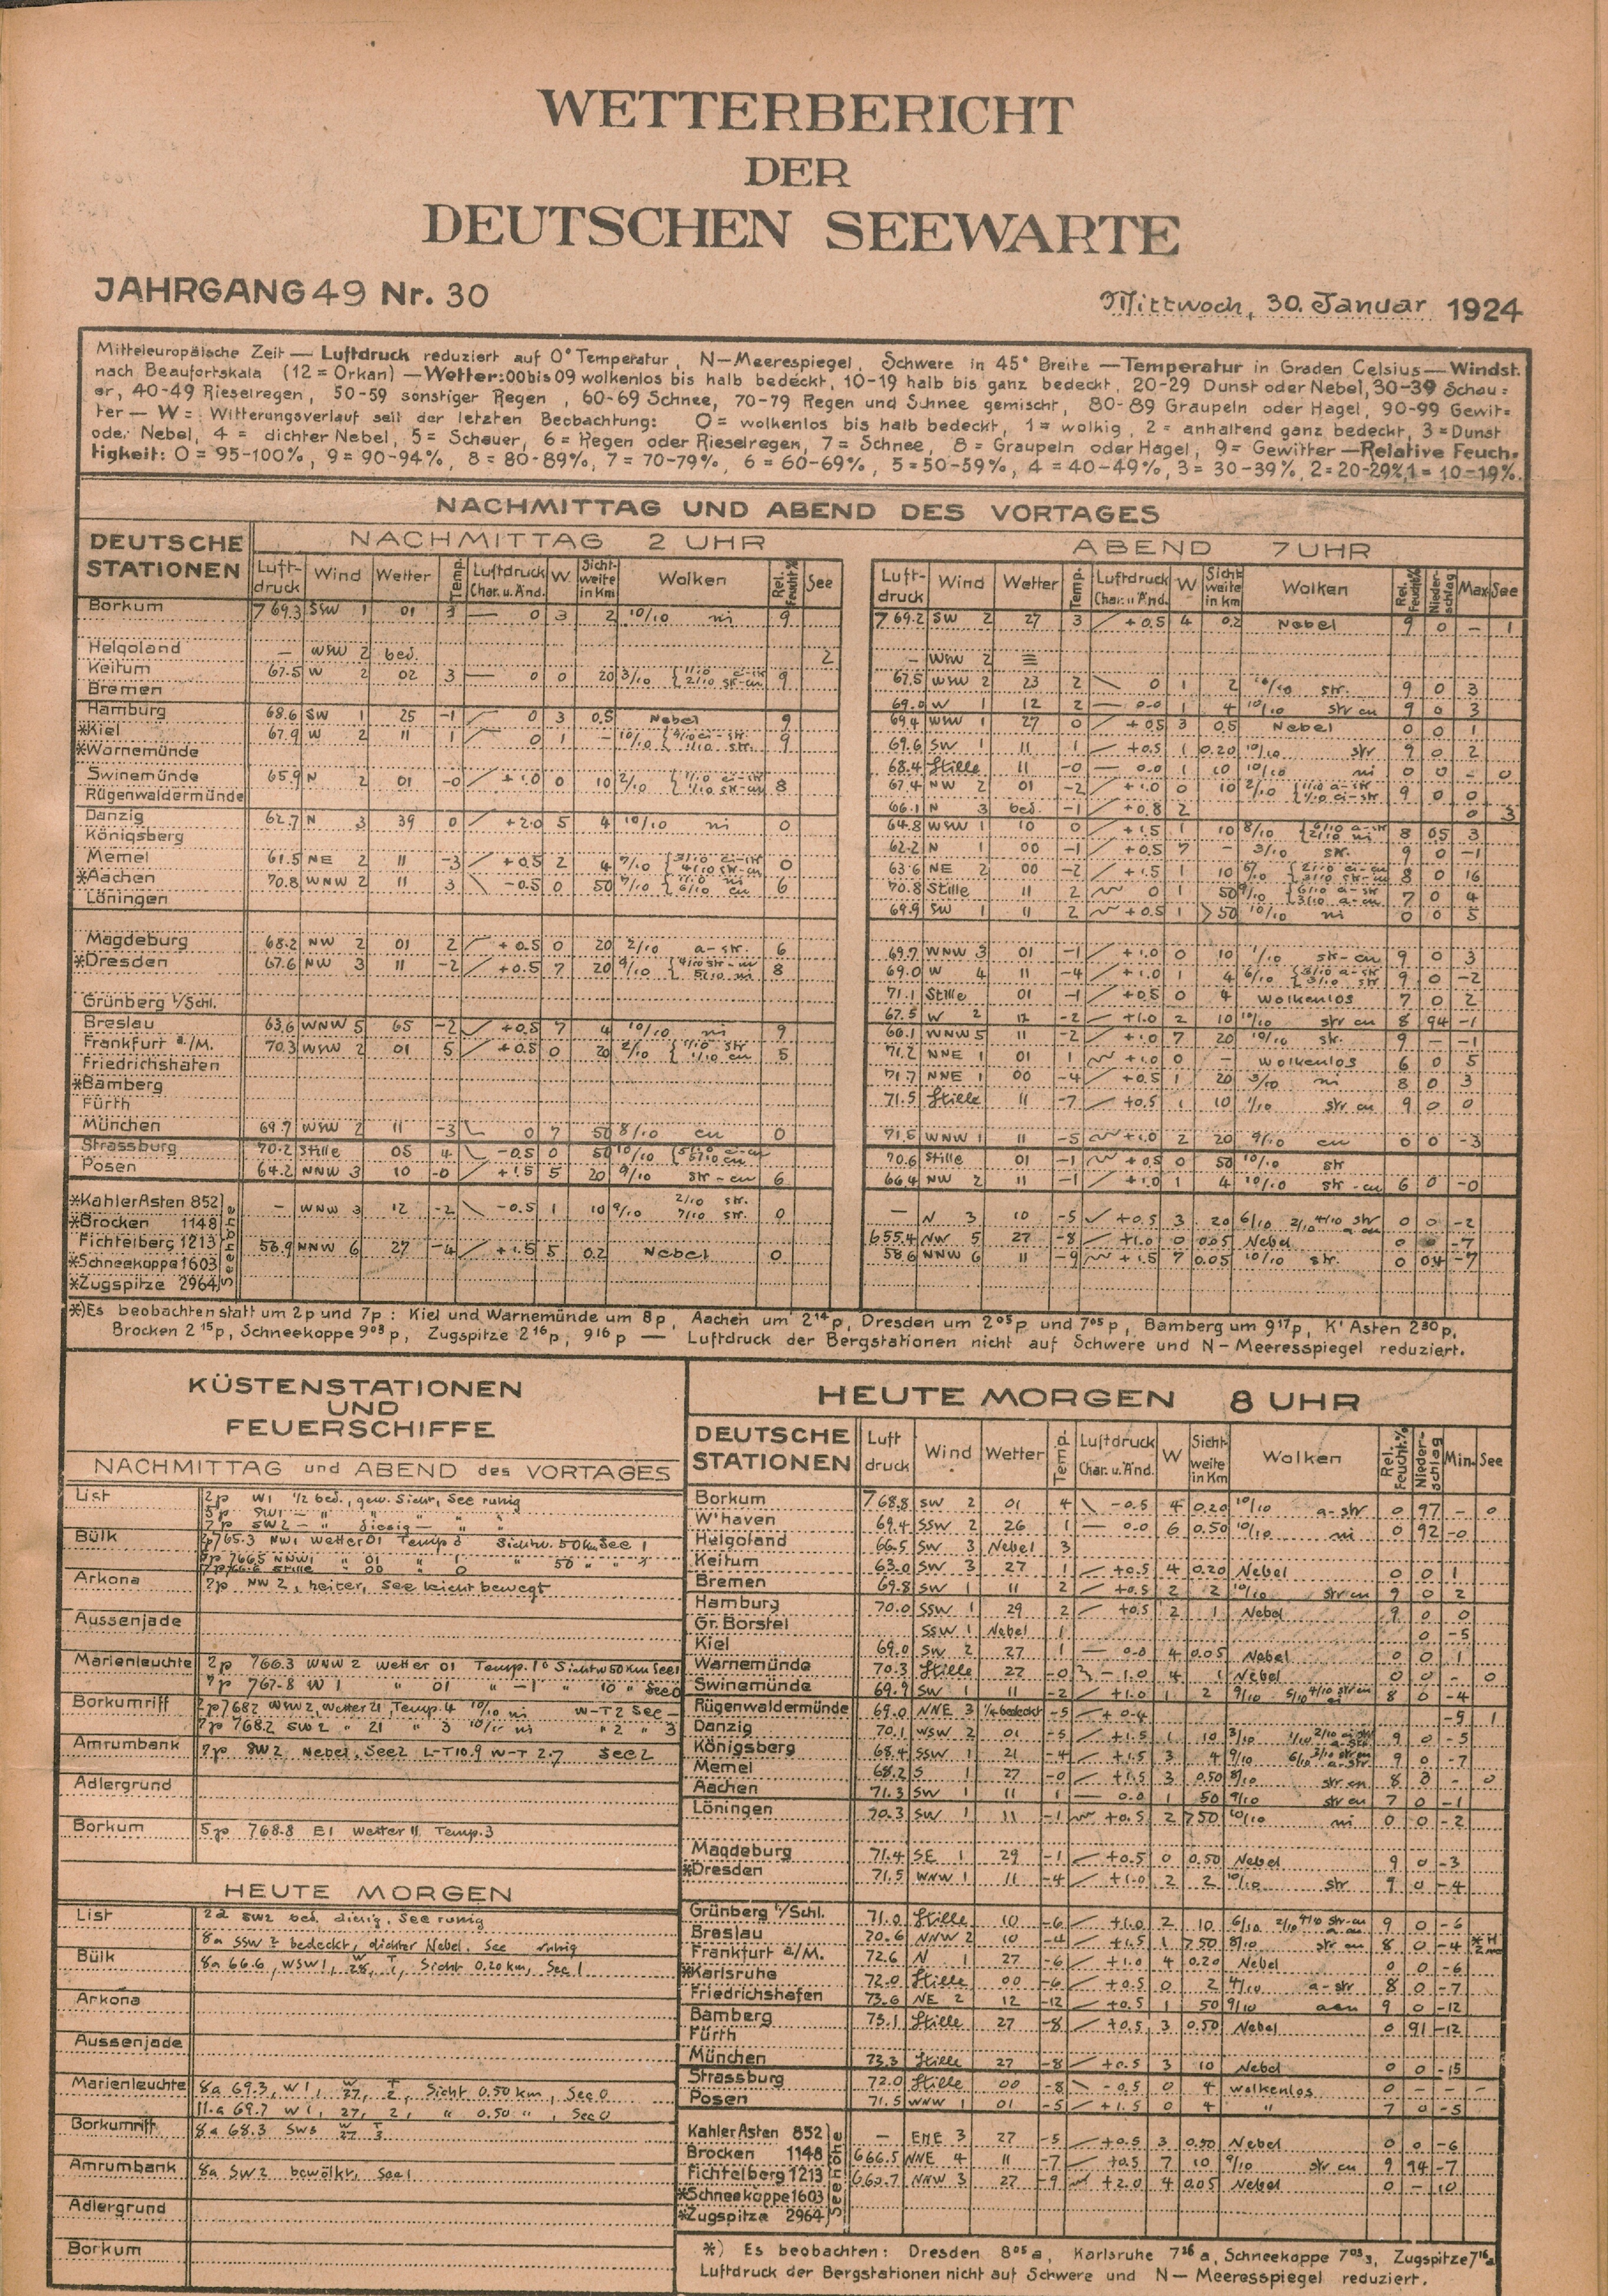 WETTERBERICHT
DER
DEUTSCHEN SEEWARTE
JAHRGANG 49 Nr. 30
Mittwoch, 30. Januar 1924
Mitteleuropäische Zeit — Luftdruck reduziert auf 0° Temperatur, N—Meerespiegel, Schwere in 45° Breite — Temperatur in Graden Celsius — Windst.
nach Beaufortskala (12 = Orkan) — Wetter: 00 bis 09 wolkenlos bis halb bedeckt, 10-19 halb bis ganz bedeckt, 20-29 Dunst oder Nebel, 30-39 Schau=
er, 40-49 Rieselregen, 50-59 sonstiger Regen, 60-69 Schnee, 70-79 Regen und Schnee gemischt, 80-89 Graupeln oder Hagel, 90-99 Gewit=
ter — W = Witterungsverlauf seit der letzten Beobachtung: 0 = wolkenlos bis halb bedeckt, 1 = wolkig, 2 = anhaltend ganz bedeckt, 3 = Dunst
oder Nebel, 4 = dichter Nebel, 5 = Schauer, 6 = Regen oder Rieselregen, 7 = Schnee, 8 = Graupeln oder Hagel, 9 = Gewitter — Relative Feuch=
tigkeit: 0 = 95-100%, 9 = 90-94%, 8 = 80-89%, 7 = 70-79%, 6 = 60-69%, 5 = 50-59%, 4 = 40-49%, 3 = 30-39%, 2 = 20-29% 1 = 10-19%.
NACHMITTAG UND ABEND DES VORTAGES
DEUTSCHE STATIONEN
NACHMITTAG 2 UHR
ABEND 7 UHR
Luftdruck Wind Wetter Temp. Luftdruck Char. u. Änd. W. Sichtweite in Km Wolken Rel. Feucht% See
Luftdruck Wind Wetter Temp. Luftdruck Char. u. Änd. W Sichtweite in Km Wolken Rel. Feucht% Niederschlag Max See
Borkum 769.3 SSW 1 01 3 0 3 2 10/10 ni 9 769.2 SW 2 27 3 +0.5 4 0.2 Nebel 9 0 – 1
Helgoland — WSW 2 bed. 2 – WSW 2
Keitum 67.5 W 2 02 3 0 0 20 3/10 9 67.5 WSW 2 23 2 0 1 2 10/10 str. 9 0 3
Bremen 69.0 W 1 12 2 0.0 1 4 10/10 str cu 9 0 3
Hamburg 68.6 SW 1 25 -1 0 3 0.5 Nebel 9 69.4 WSW 1 27 0 +0.5 3 0.5 Nebel 0 0 1
*Kiel 67.9 W 2 11 1 0 1 – 10/10 9 69.6 SW 1 11 1 +0.5 1 0.20 10/10 str 9 0 2
*Warnemünde 68.4 Stille 11 -0 0.0 1 10 10/10 ni 0 0 – 0
Swinemünde 65.9 N 2 01 -0 +1.0 0 10 2/10 8 67.4 NW 2 01 -2 +1.0 0 10 2/10 9 0 0
Rügenwaldermünde 66.1 N 3 bed. -1 +0.8 2 0 3
Danzig 62.7 N 3 39 0 +2.0 5 4 10/10 ni 0 64.8 WSW 1 10 0 +1.5 1 10 8/10 8 05 3
Königsberg 62.2 N 1 00 -1 +0.5 7 – 3/10 str. 9 0 -1
Memel 61.5 NE 2 11 -3 +0.5 2 4 0 63.6 NE 2 00 -2 +1.5 1 10 8 0 16
*Aachen 70.8 WNW 2 11 3 -0.5 0 50 6 70.8 Stille 11 2 0 1 50 7 0 4
Löningen 69.9 SW 1 11 2 +0.5 1 >50 10/10 ni 0 0 5
Magdeburg 68.2 NW 2 01 2 +0.5 0 20 2/10 a-str. 6 69.7 WNW 3 01 -1 +1.0 0 10 1/10 str-cu 9 0 3
*Dresden 67.6 NW 3 11 -2 +0.5 7 20 9/10 8 69.0 W 4 11 -4 +1.0 1 4 6/10 9 0 -2
Grünberg i/Schl. 71.1 Stille 01 -1 +0.5 0 4 wolkenlos 7 0 2
Breslau 63.6 WNW 5 65 -2 +0.5 7 4 10/10 ni 9 67.5 W 2 12 -2 +1.0 2 10 10/10 str cu 8 94 -1
Frankfurt a./M. 70.3 WSW 2 01 5 +0.5 0 20 2/10 5 66.1 WNW 5 11 -2 +1.0 7 20 10/10 str. 9 – -1
Friedrichshafen 71.2 NNE 1 01 1 +1.0 0 – wolkenlos 6 0 5
*Bamberg 71.7 NNE 1 00 -4 +0.5 1 20 3/10 ni 8 0 3
Fürth 71.5 Stille 11 -7 +0.5 1 10 str cu 9 0 0
München 69.7 WSW 2 11 -3 0 7 50 8/10 cu 0 71.5 WNW 1 11 -5 +1.0 2 20 9/10 cu 0 0 -3
Strassburg 70.2 Stille 05 4 -0.5 0 50 10/10 70.6 Stille 01 -1 +0.5 0 50 10/10 str
Posen 64.2 NNW 3 10 -0 +1.5 5 20 9/10 str-cu 6 66.4 NW 2 11 -1 +1.0 1 4 10/10 str-cu 6 0 -0
*Kahler Asten 852 – WNW 3 12 -2 -0.5 1 10 9/10 2/10 str. 7/10 str. 0 — N 3 10 -5 +0.5 3 20 6/10 0 0 -2
*Brocken 1148 655.4 NW 5 27 -8 +1.0 0 0.05 Nebel 0 -7
Fichtelberg 1213 56.9 NNW 6 27 -4 +1.5 5 0.2 Nebel 0 58.6 NNW 6 11 -9 +1.5 7 0.05 10/10 str. 0 04 -7
*Schneekoppe 1603
*Zugspitze 2964
Seehöhe
*) Es beobachten statt um 2p und 7p: Kiel und Warnemünde um 8p, Aachen um 2 14 p, Dresden um 2 05 p und 7 05 p, Bamberg um 9 17 p, K' Asten 2 30 p,
Brocken 2 15 p, Schneekoppe 9 03 p, Zugspitze 2 16 p, 9 16 p — Luftdruck der Bergstationen nicht auf Schwere und N—Meeresspiegel reduziert.
KÜSTENSTATIONEN
UND
FEUERSCHIFFE
NACHMITTAG und ABEND des VORTAGES
List 2p W1 1/2 bed., gew. Sicht, See ruhig
5p SW1 — " " "
7p SW2 — " diesig — " "
Bülk 2p 765.3 NW1 Wetter 01 Temp 3 Sichtw. 50 km See 1
5p 766.5 NNW1 " 01 " 1 " 50 " "
Stille " 00 " 0
Arkona 2p NW 2, heiter, See leicht bewegt
Aussenjade
Marienleuchte 2p 766.3 WNW 2 Wetter 01 Temp. 1° Sichtw 50 Km See 1
7p 767.8 W 1 " 01 " -1 " 10 " See 0
Borkumriff 2p 768.2 WSW 2, Wetter 21, Temp. 4 10/10 ni W-T 2 See —
7p 768.2 SW 2 " 21 " 3 10/10 ni " 2 " 3
Amrumbank 7p SW 2 Nebel, See 2 L-T 10.9 W-T 2.7 See 2
Adlergrund
Borkum 5p 768.8 E1 Wetter 11 Temp. 3
HEUTE MORGEN
List 2a SW2 bed. diesig, See ruhig
8a SSW 2 bedeckt, dichter Nebel, See ruhig
Bülk 8a 66.6, WSW 1, Sicht 0.20 km, See 1
Arkona
Aussenjade
Marienleuchte 8a 69.3, W 1, W 27, T 2, Sicht 0.50 km, See 0
11a 69.7 W 1, 27, 2, " 0.50 ", See 0
Borkumriff 8a 68.3 SW3 W 27 T 3
Amrumbank 8a SW 2 bewölkt, See 1
Adlergrund
Borkum
HEUTE MORGEN 8 UHR
DEUTSCHE STATIONEN Luftdruck Wind Wetter Temp. Luftdruck Char. u. Änd. W Sichtweite in Km Wolken Rel. Feucht.% Niederschlag Min. See
Borkum 768.8 SW 2 01 4 -0.5 4 0.20 10/10 a-str 0 97 – 0
W'haven 69.4 SSW 2 26 1 0.0 6 0.50 10/10 ni 0 92 -0
Helgoland 66.5 SW 3 Nebel 3
Keitum 63.0 SW 3 27 1 +0.5 4 0.20 Nebel 0 0 1
Bremen 69.8 SW 1 11 2 +0.5 2 2 10/10 str cu 9 0 2
Hamburg 70.0 SSW 1 29 2 +0.5 2 1 Nebel 9 0 0
Gr. Borstel SSW 1 Nebel 1 0 -5
Kiel 69.0 SW 2 27 1 0.0 4 0.05 Nebel 0 0 1
Warnemünde 70.3 Stille 27 -0 -1.0 4 1 Nebel 0 0 – 0
Swinemünde 69.9 SW 1 11 -2 +1.0 1 2 9/10 8 0 -4
Rügenwaldermünde 69.0 NNE 3 1/4 bedeckt -5 +0.4 -9 1
Danzig 70.1 WSW 2 01 -5 +1.5 1 10 3/10 9 0 -5
Königsberg 68.4 SSW 1 21 -4 +1.5 3 4 9/10 9 0 -7
Memel 68.2 S 1 27 -0 +1.5 3 0.50 8/10 str cu 8 – 0
Aachen 71.3 SW 1 11 1 0.0 1 50 9/10 str cu 7 0 -1
Löningen 70.3 SW 1 11 -1 +0.5 2 >50 10/10 ni 0 0 -2
Magdeburg 71.4 SE 1 29 -1 +0.5 0 0.50 Nebel 9 0 -3
*Dresden 71.5 WNW 1 11 -4 +1.0 2 2 10/10 str 9 0 -4
Grünberg i/Schl. 71.0 Stille 10 -6 +1.0 2 10 6/10 9 0 -6
Breslau 70.6 NNW 2 10 -4 +1.5 1 >50 8/10 str cu 8 0 -4
Frankfurt a/M. 72.6 N 1 27 -6 +1.0 4 0.20 Nebel 0 0 -6
*Karlsruhe 72.0 Stille 00 -6 +0.5 0 2 4/10 a-str 8 0 -7
Friedrichshafen 73.6 NE 2 12 -12 +0.5 1 50 9/10 9 0 -12
Bamberg 73.1 Stille 27 -8 +0.5 3 0.50 Nebel 0 91 -12
Fürth
München 73.3 Stille 27 -8 +0.5 3 10 Nebel 0 0 -15
Strassburg 72.0 Stille 00 -8 -0.5 0 4 wolkenlos 0 – – –
Posen 71.5 WNW 1 01 -5 +1.5 0 4 " 7 0 -5
Kahler Asten 852 — ENE 3 27 -5 +0.5 3 0.50 Nebel 0 0 -6
Brocken 1148 666.5 NNE 4 11 -7 +0.5 7 10 9/10 str cu 9 94 -7
Fichtelberg 1213 660.7 NNW 3 27 -9 +2.0 4 0.05 Nebel 0 – 10
*Schneekoppe 1603
*Zugspitze 2964
Seehöhe
*) Es beobachten: Dresden 8 05 a, Karlsruhe 7 26 a, Schneekoppe 7 03 a, Zugspitze 7 16 a
Luftdruck der Bergstationen nicht auf Schwere und N—Meeresspiegel reduziert.